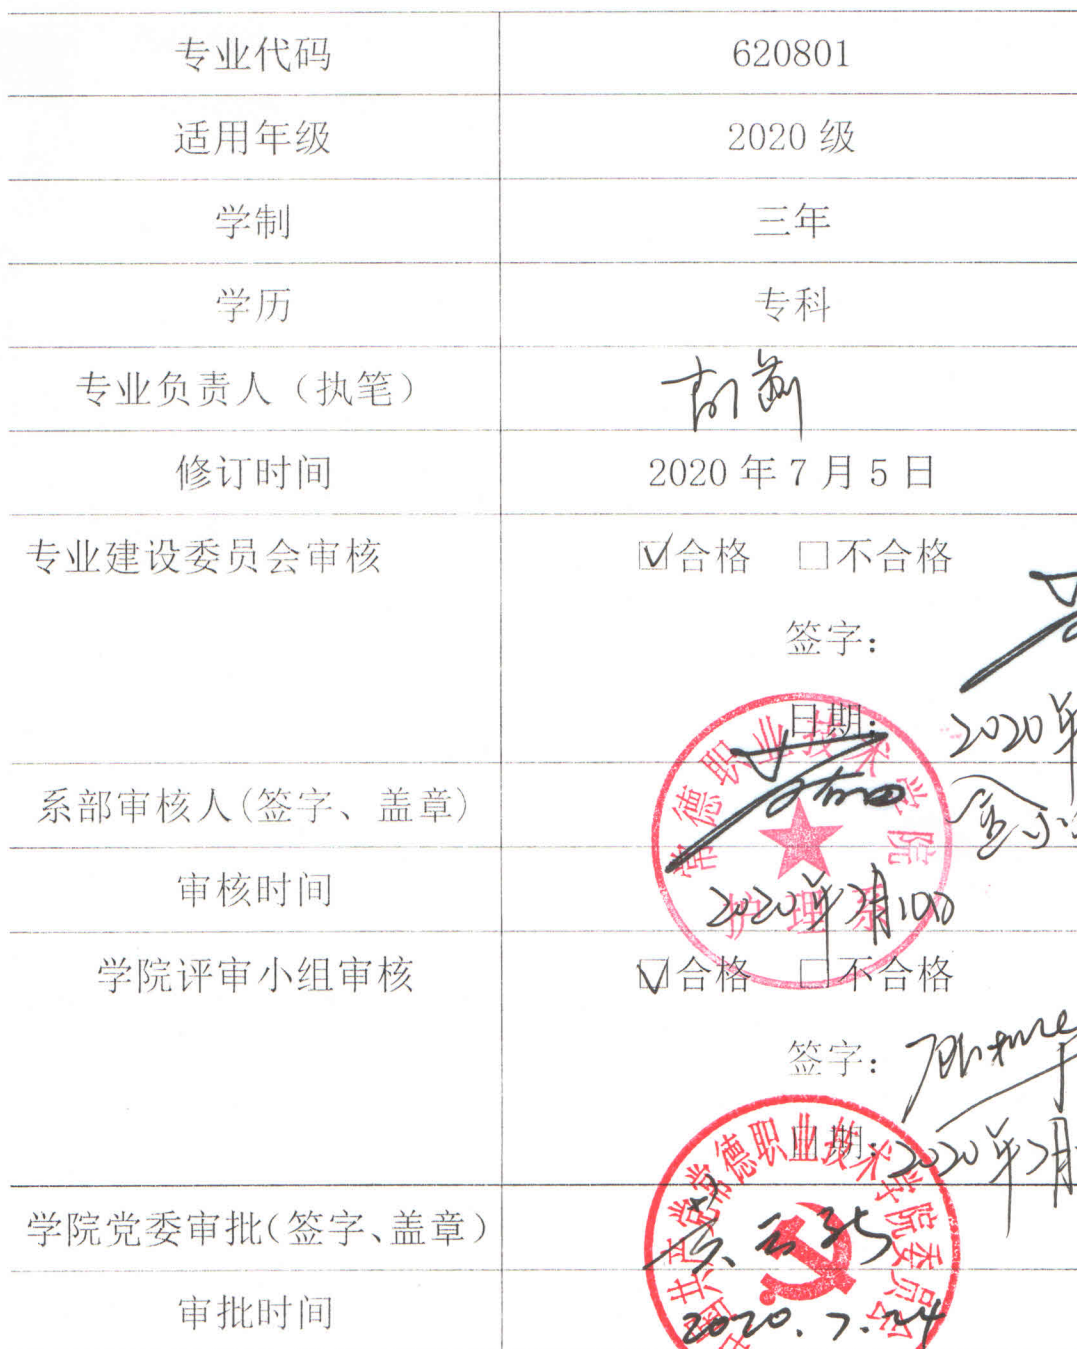 专业代码 620801
适用年级 2020 级
学制 三年
学历 专科
专业负责人（执笔）
修订时间 2020 年 7 月 5 日
专业建设委员会审核 ☑合格 □不合格
签字：
日期： 2020年
系部审核人(签字、盖章)
常德职业技术学院
护理系
审核时间 2020年7月10日
学院评审小组审核 ☑合格 □不合格
签字：
日期： 2020年7月
学院党委审批(签字、盖章)
中国共产党常德职业技术学院委员会
审批时间 2020.7.24